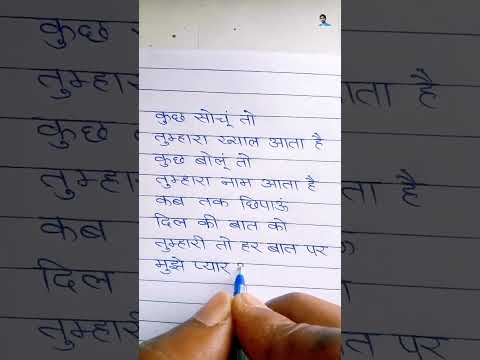 कुछ सोचूं तो
तुम्हारा ख्याल आता है
कुछ बोलूं तो
तुम्हारा नाम आता है
कब तक छिपाऊं
दिल की बात को
तुम्हारी तो हर बात पर
मुझे प्यार